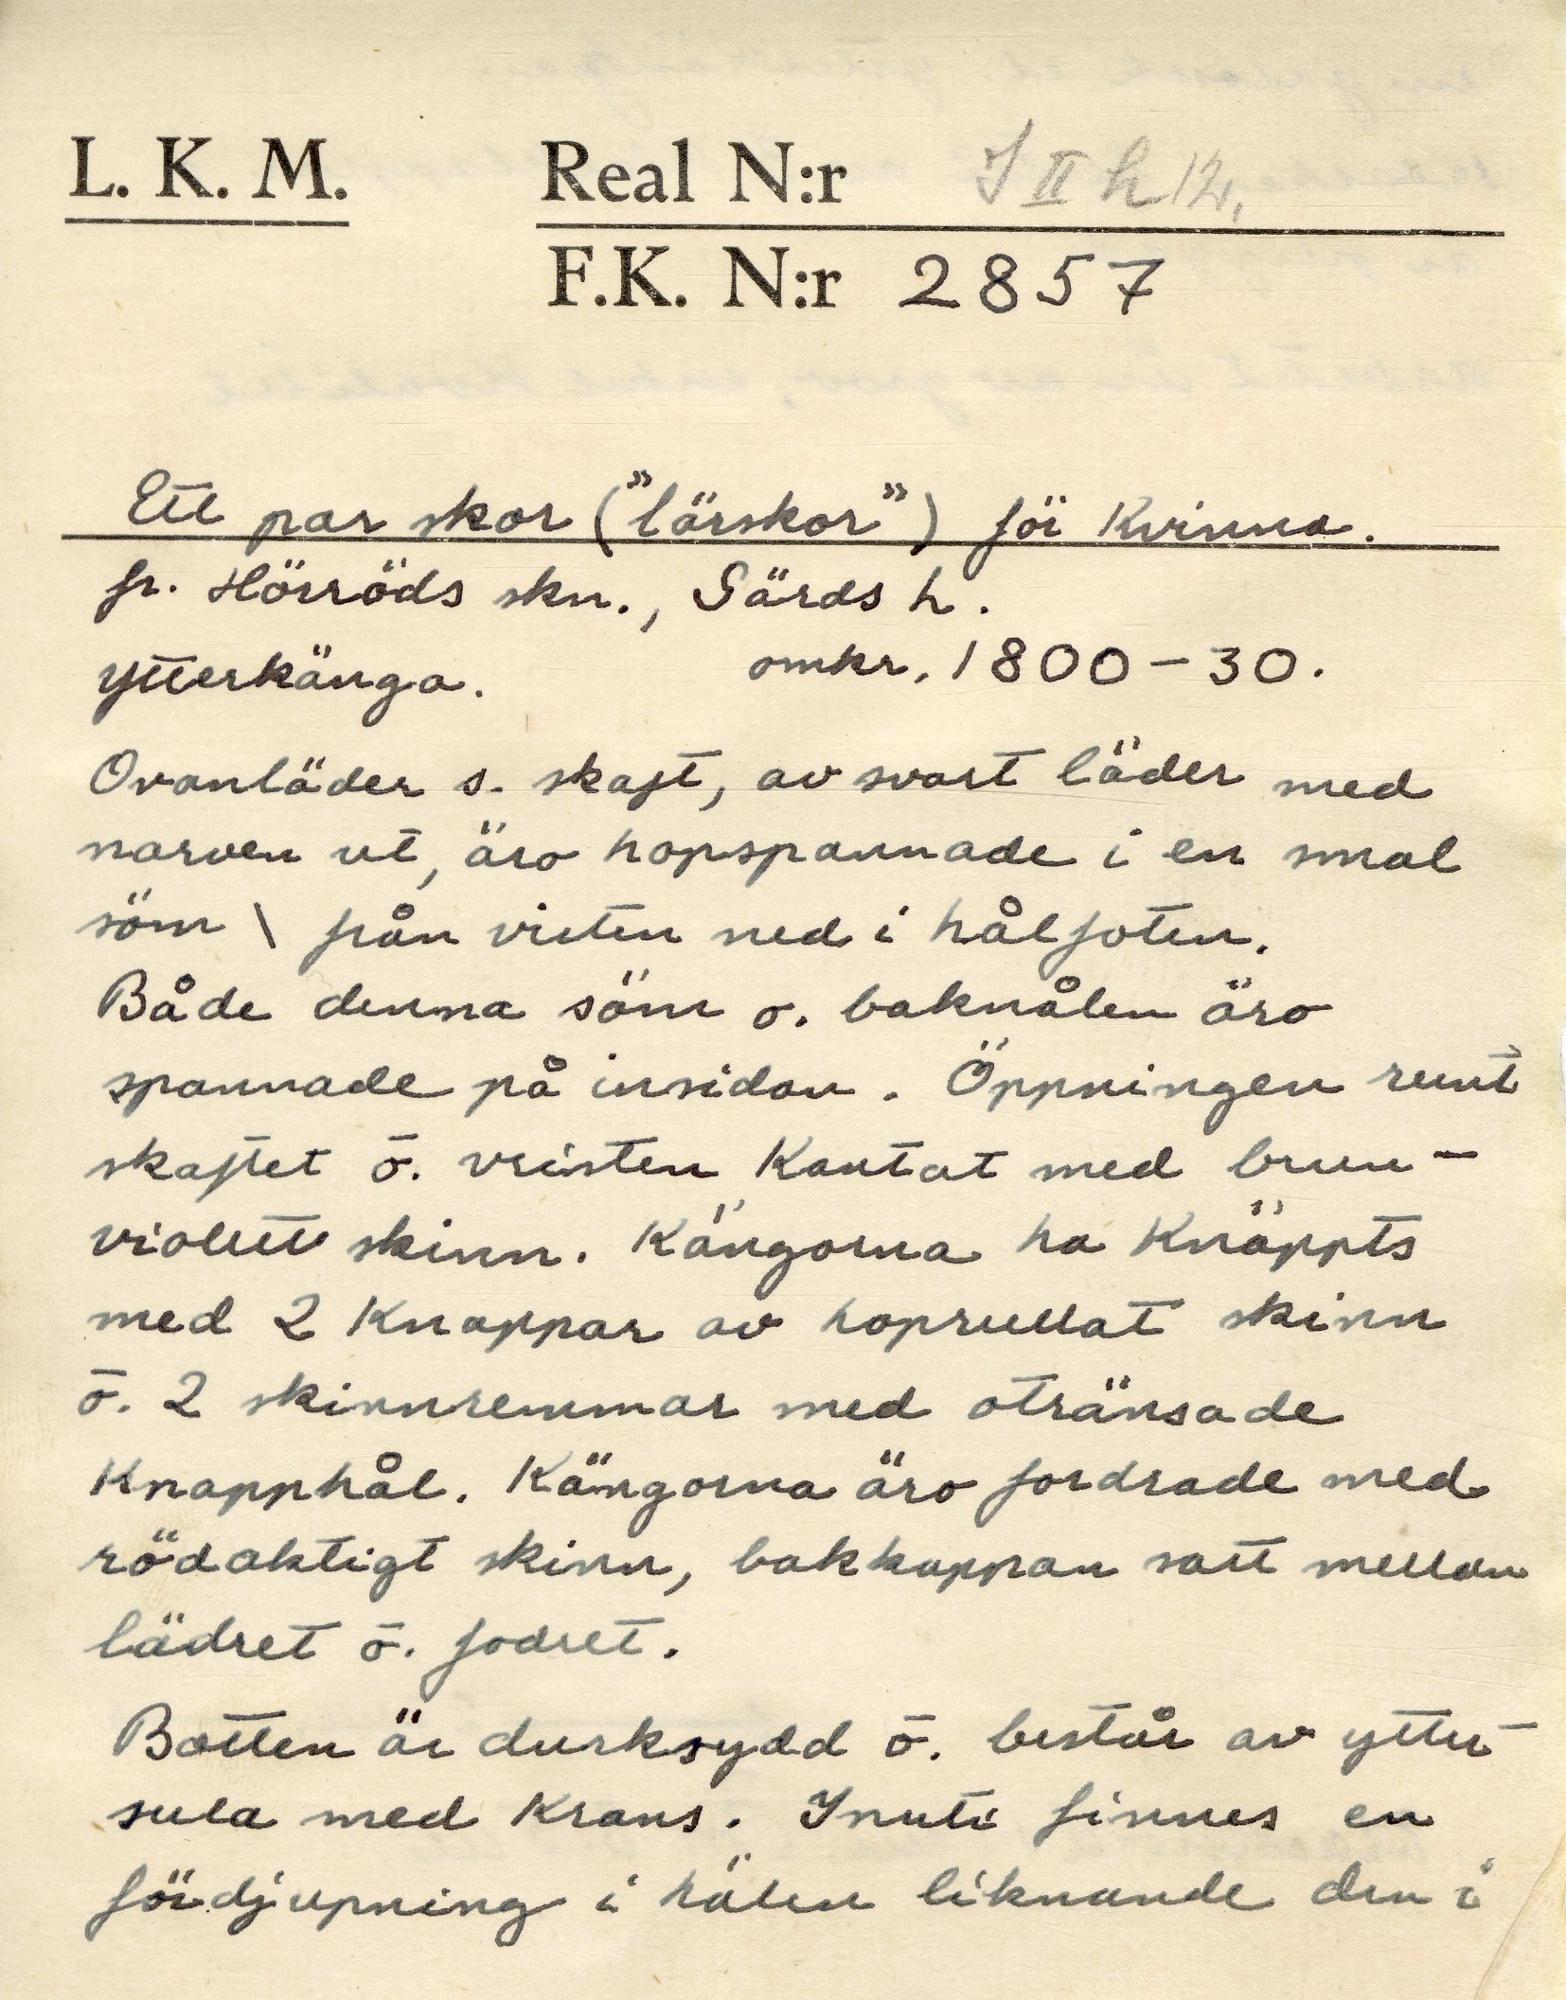 L. K. M. Real N:r I II h 12.
F.K. N:r 2857
Ett par skor ("lärskor") för Kvinna.
fr. Hörröds skn., Gärds h.
ytterkänga. omkr. 1800-30.
Ovanläder s. skaft, av svart läder med
narven ut, äro hopspannade i en smal
söm \ från vristen ned i hålfoten.
Både denna söm o. baknålen äro
spannade på insidan. Öppningen runt
skaftet o. vristen Kantat med brun-
violett skinn. Kängorna ha Knäppts
med 2 Knappar av hoprullat skinn
o. 2 skinnremmar med otränsade
Knapphål. Kängorna äro fordrade med
rödaktigt skinn, bakkappan satt mellan
lädret o. fodret.
Botten är durksydd o. består av ytter-
sula med Krans. Inuti finnes en
fördjupning i hälen liknande den i